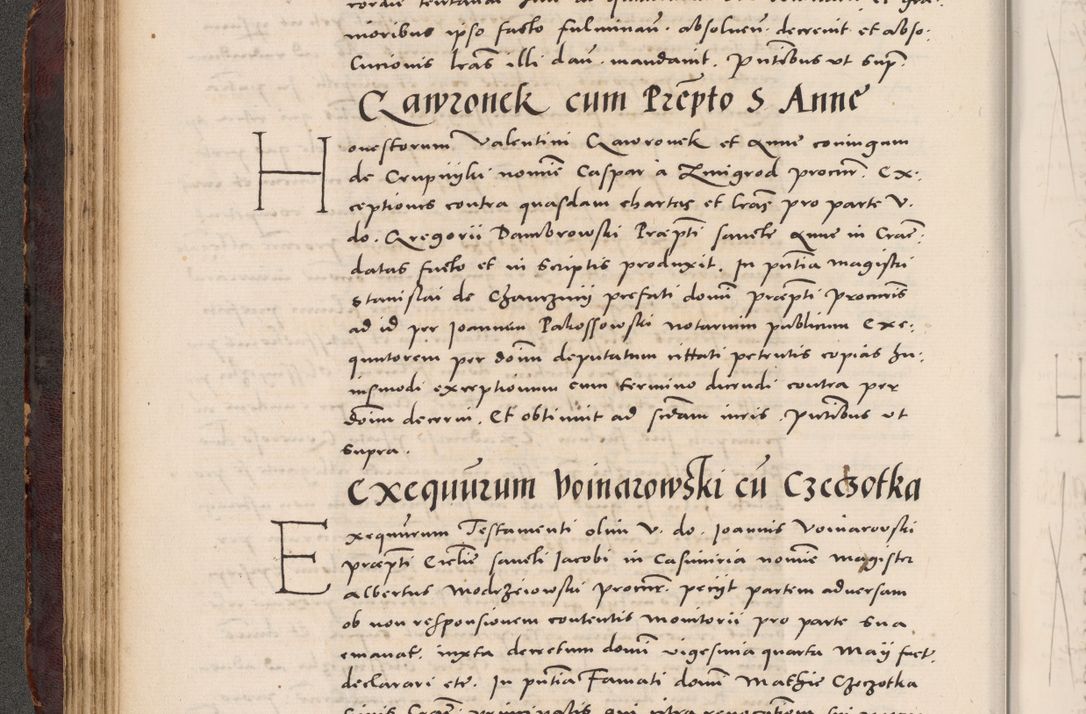 moribus ipso facto fulminaň. absolueň. decreuit et abso:
lucionis lras illi daň. mandauit. Pntibus vt sup.
Gawronek cum Prepto S Anne
Honestorum Valentini Gawronek et Anne coniugum
de Crupnyki nomie Caspar a Zmigrod procur. Ex:
ceptiones contra quasdam chartas et lras pro parte V.
do. Gregorii Dambrowski Præpti sancte Anne in Crac:
datas facto et in scriptis produxit. In pntia magistri
Stanislai de Chanczinij prefati domi præpti Procuris
ad id per Joannem Pakossowski notarium publicum Exe:
quutorem per domi deputatum cittati petentis copias hu:
iusmodi exceptionum cum termino dicendi contra per
doim decerni. Et obtinuit ad sedam iuris. Pntibus vt
supra.
Exequuurum Voinarowski cu Czeczotka
Exequuurum Testamenti olim V. do. Joannis Voinarovski
præpti Eccliæ sancti Jacobi in Casimiria nomie Magister
Albertus Modrzeiowski procur. petijt partem aduersam
ob non responsionem contentis monitorii pro parte sua
emanat. iuxta decretum domi vigesima quarta Maij fact.
declarari etc. In pntia Famati domi Mathie Czeczotka